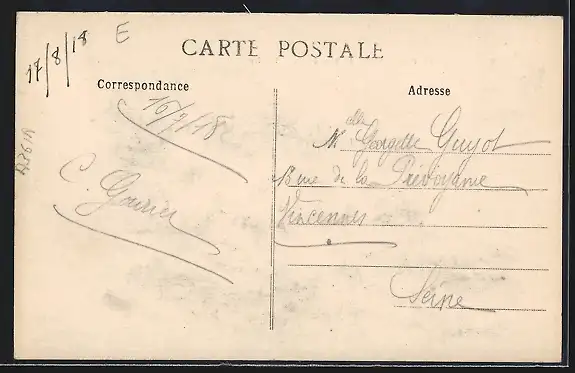 17/8/18
E
CARTE POSTALE
Correspondance
Adresse
16/9/18
Mlle Georgette Guyot
rue de la Prévoyance
Vincennes
C.
Seine